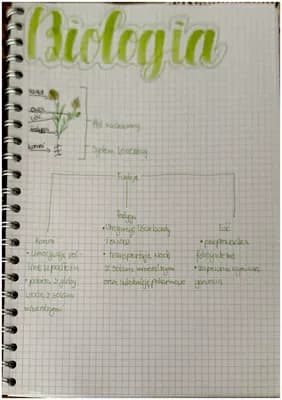 Biologia
kwiat
owoc
liść
łodyga
korzeń
Pęd nadziemny
System korzeniowy
Funkcje
Łodyga
Liść
Korzeń
• Utrzymuje liście kwiaty
i owoce
• transportuje wodę
z solami mineralnymi
oraz substancje pokarmowe
• przeprowadza
fotosyntezę
• zapewnia wymianę
gazową
• Umocowuje roś-
linę w podłożu
• pobiera z gleby
wodę z solami
mineralnymi